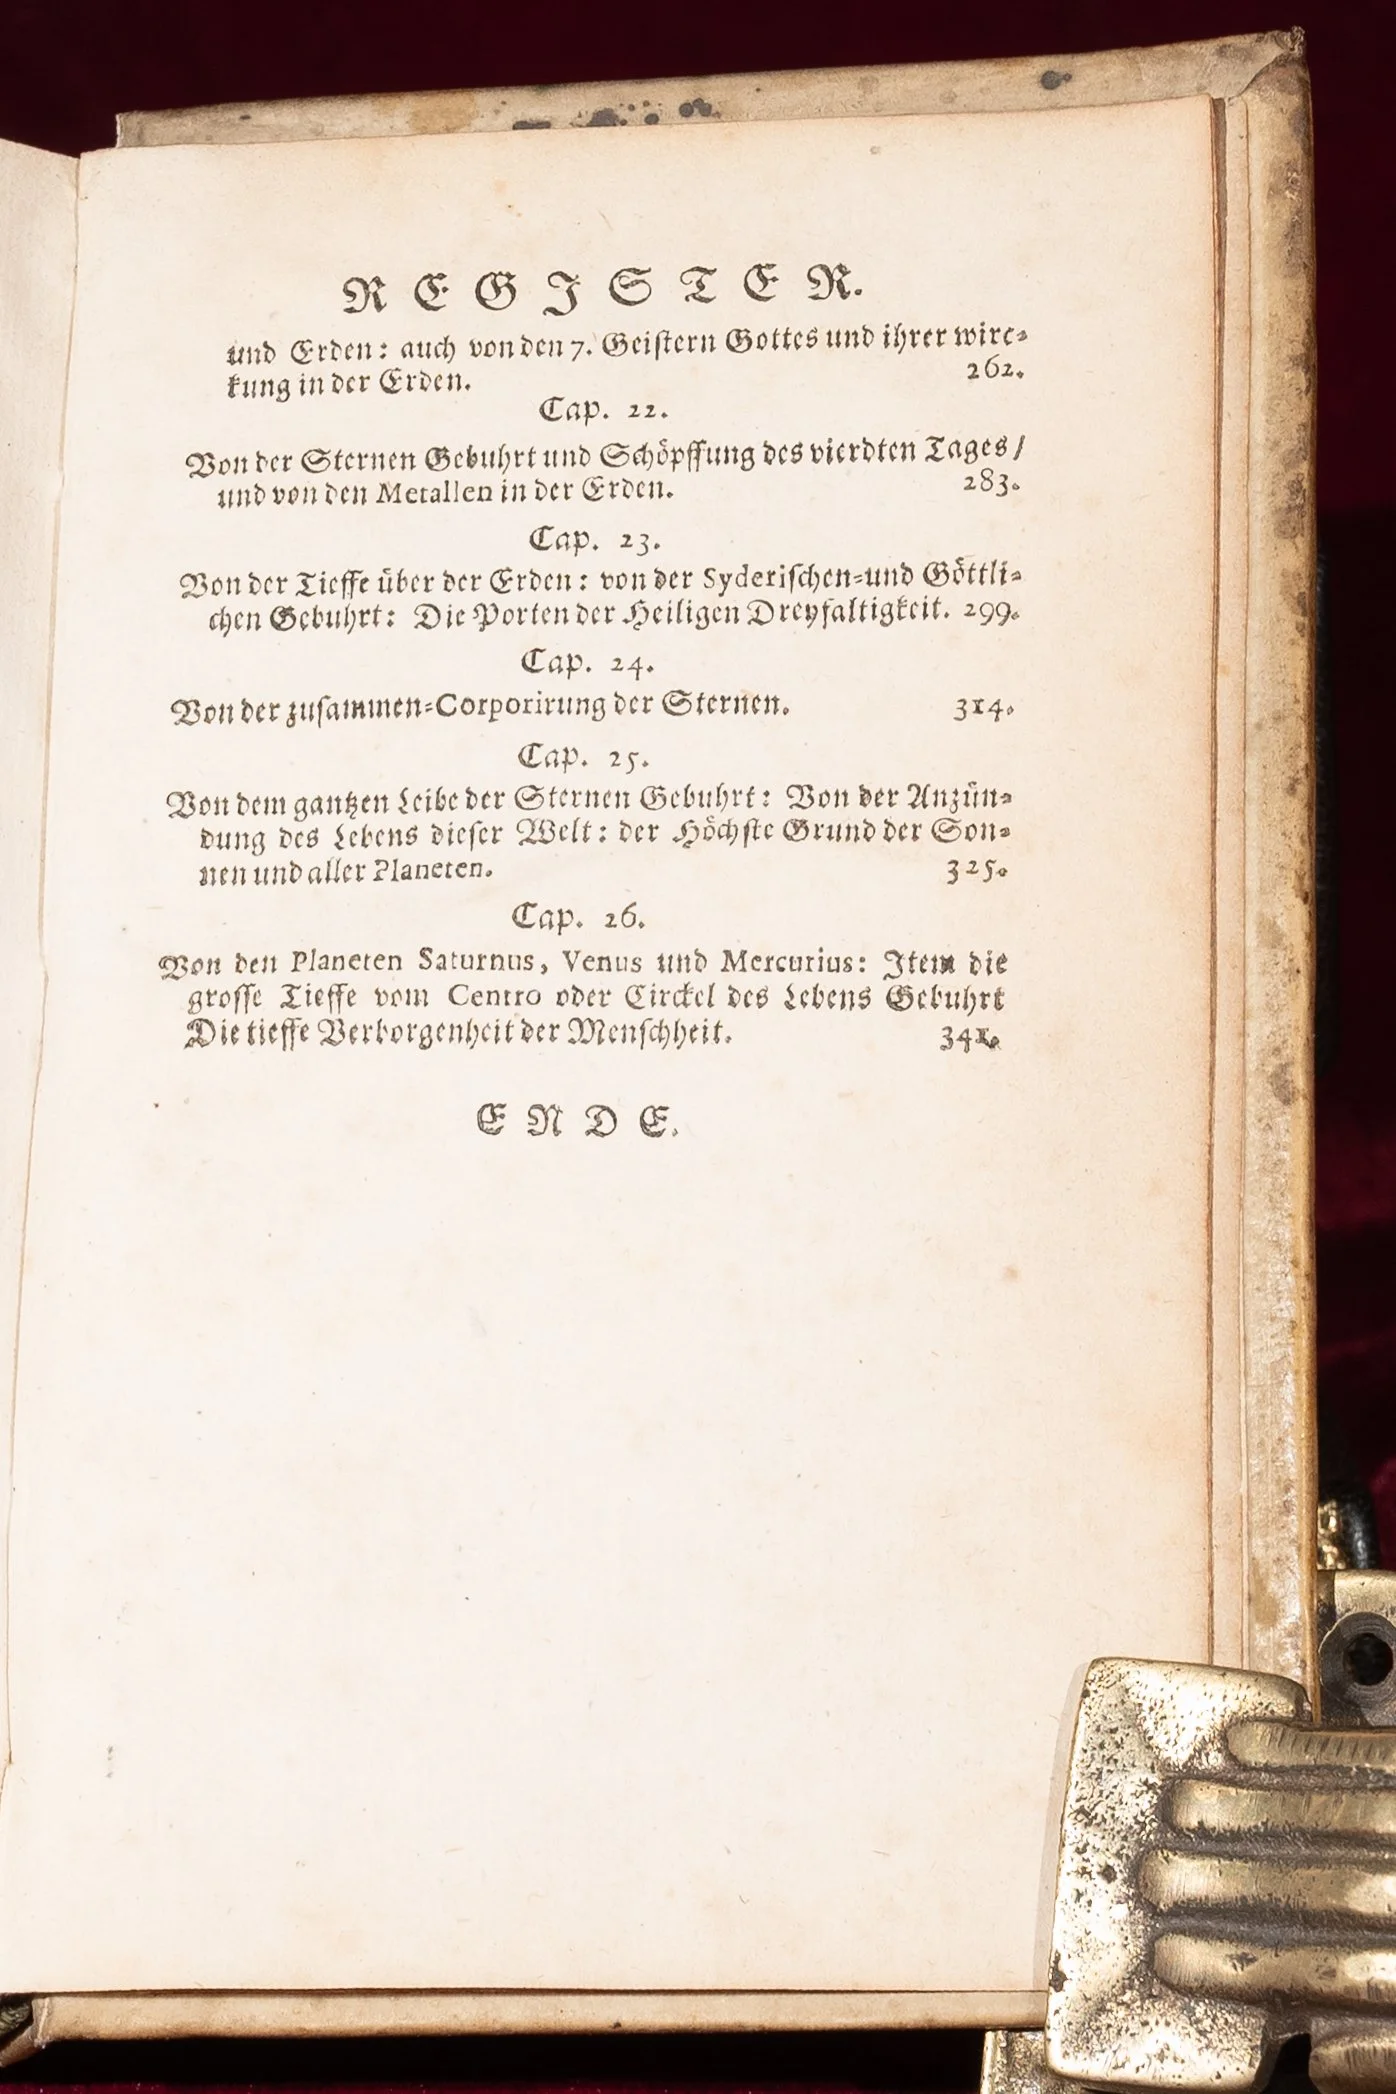 REGISTER.
und Erden: auch von den 7. Geistern Gottes und ihrer wirc-
kung in der Erden. 262.
Cap. 22.
Von der Sternen Gebuhrt und Schöpffung des vierdten Tages/
und von den Metallen in der Erden. 283.
Cap. 23.
Von der Tieffe über der Erden: von der Syderischen-und Göttli-
chen Gebuhrt: Die Porten der Heiligen Dreyfaltigkeit. 299.
Cap. 24.
Von der zusammen-Corporirung der Sternen. 314.
Cap. 25.
Von dem gantzen Leibe der Sternen Gebuhrt: Von der Anzün-
dung des Lebens dieser Welt: der Höchste Grund der Son-
nen und aller Planeten. 325.
Cap. 26.
Von den Planeten Saturnus, Venus und Mercurius: Item die
grosse Tieffe vom Centro oder Circkel des Lebens Gebuhrt
Die tieffe Verborgenheit der Menschheit. 341.
ENDE.